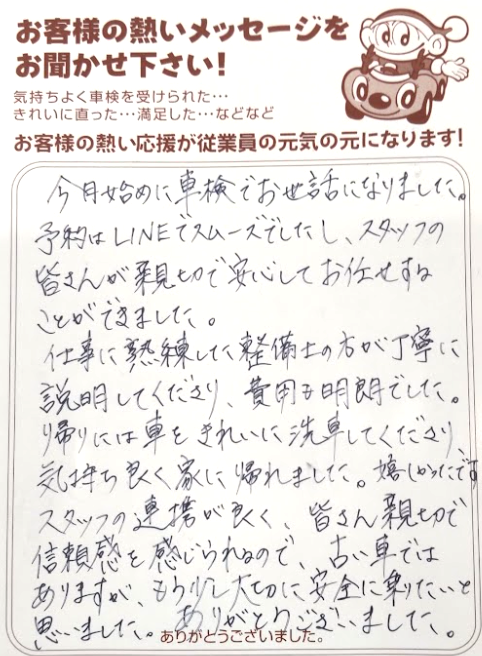 お客様の熱いメッセージを
お聞かせ下さい!
気持ちよく車検を受けられた…
きれいに直った…満足した…などなど
お客様の熱い応援が従業員の元気の元になります!
今月始めに車検でお世話になりました。
予約はLINEでスムーズでしたし、スタッフの
皆さんが親切で安心してお任せする
ことができました。
仕事に熟練した整備士の方が丁寧に
説明してくださり、費用も明朗でした。
帰りには車をきれいに洗車してくださり、
気持ち良く家に帰れました。嬉しかったです
スタッフの連携が良く、皆さん親切で
信頼感を感じられるので、古い車では
ありますが、もう少し大切に安全に乗りたいと
思いました。ありがとうございました。
ありがとうございました。